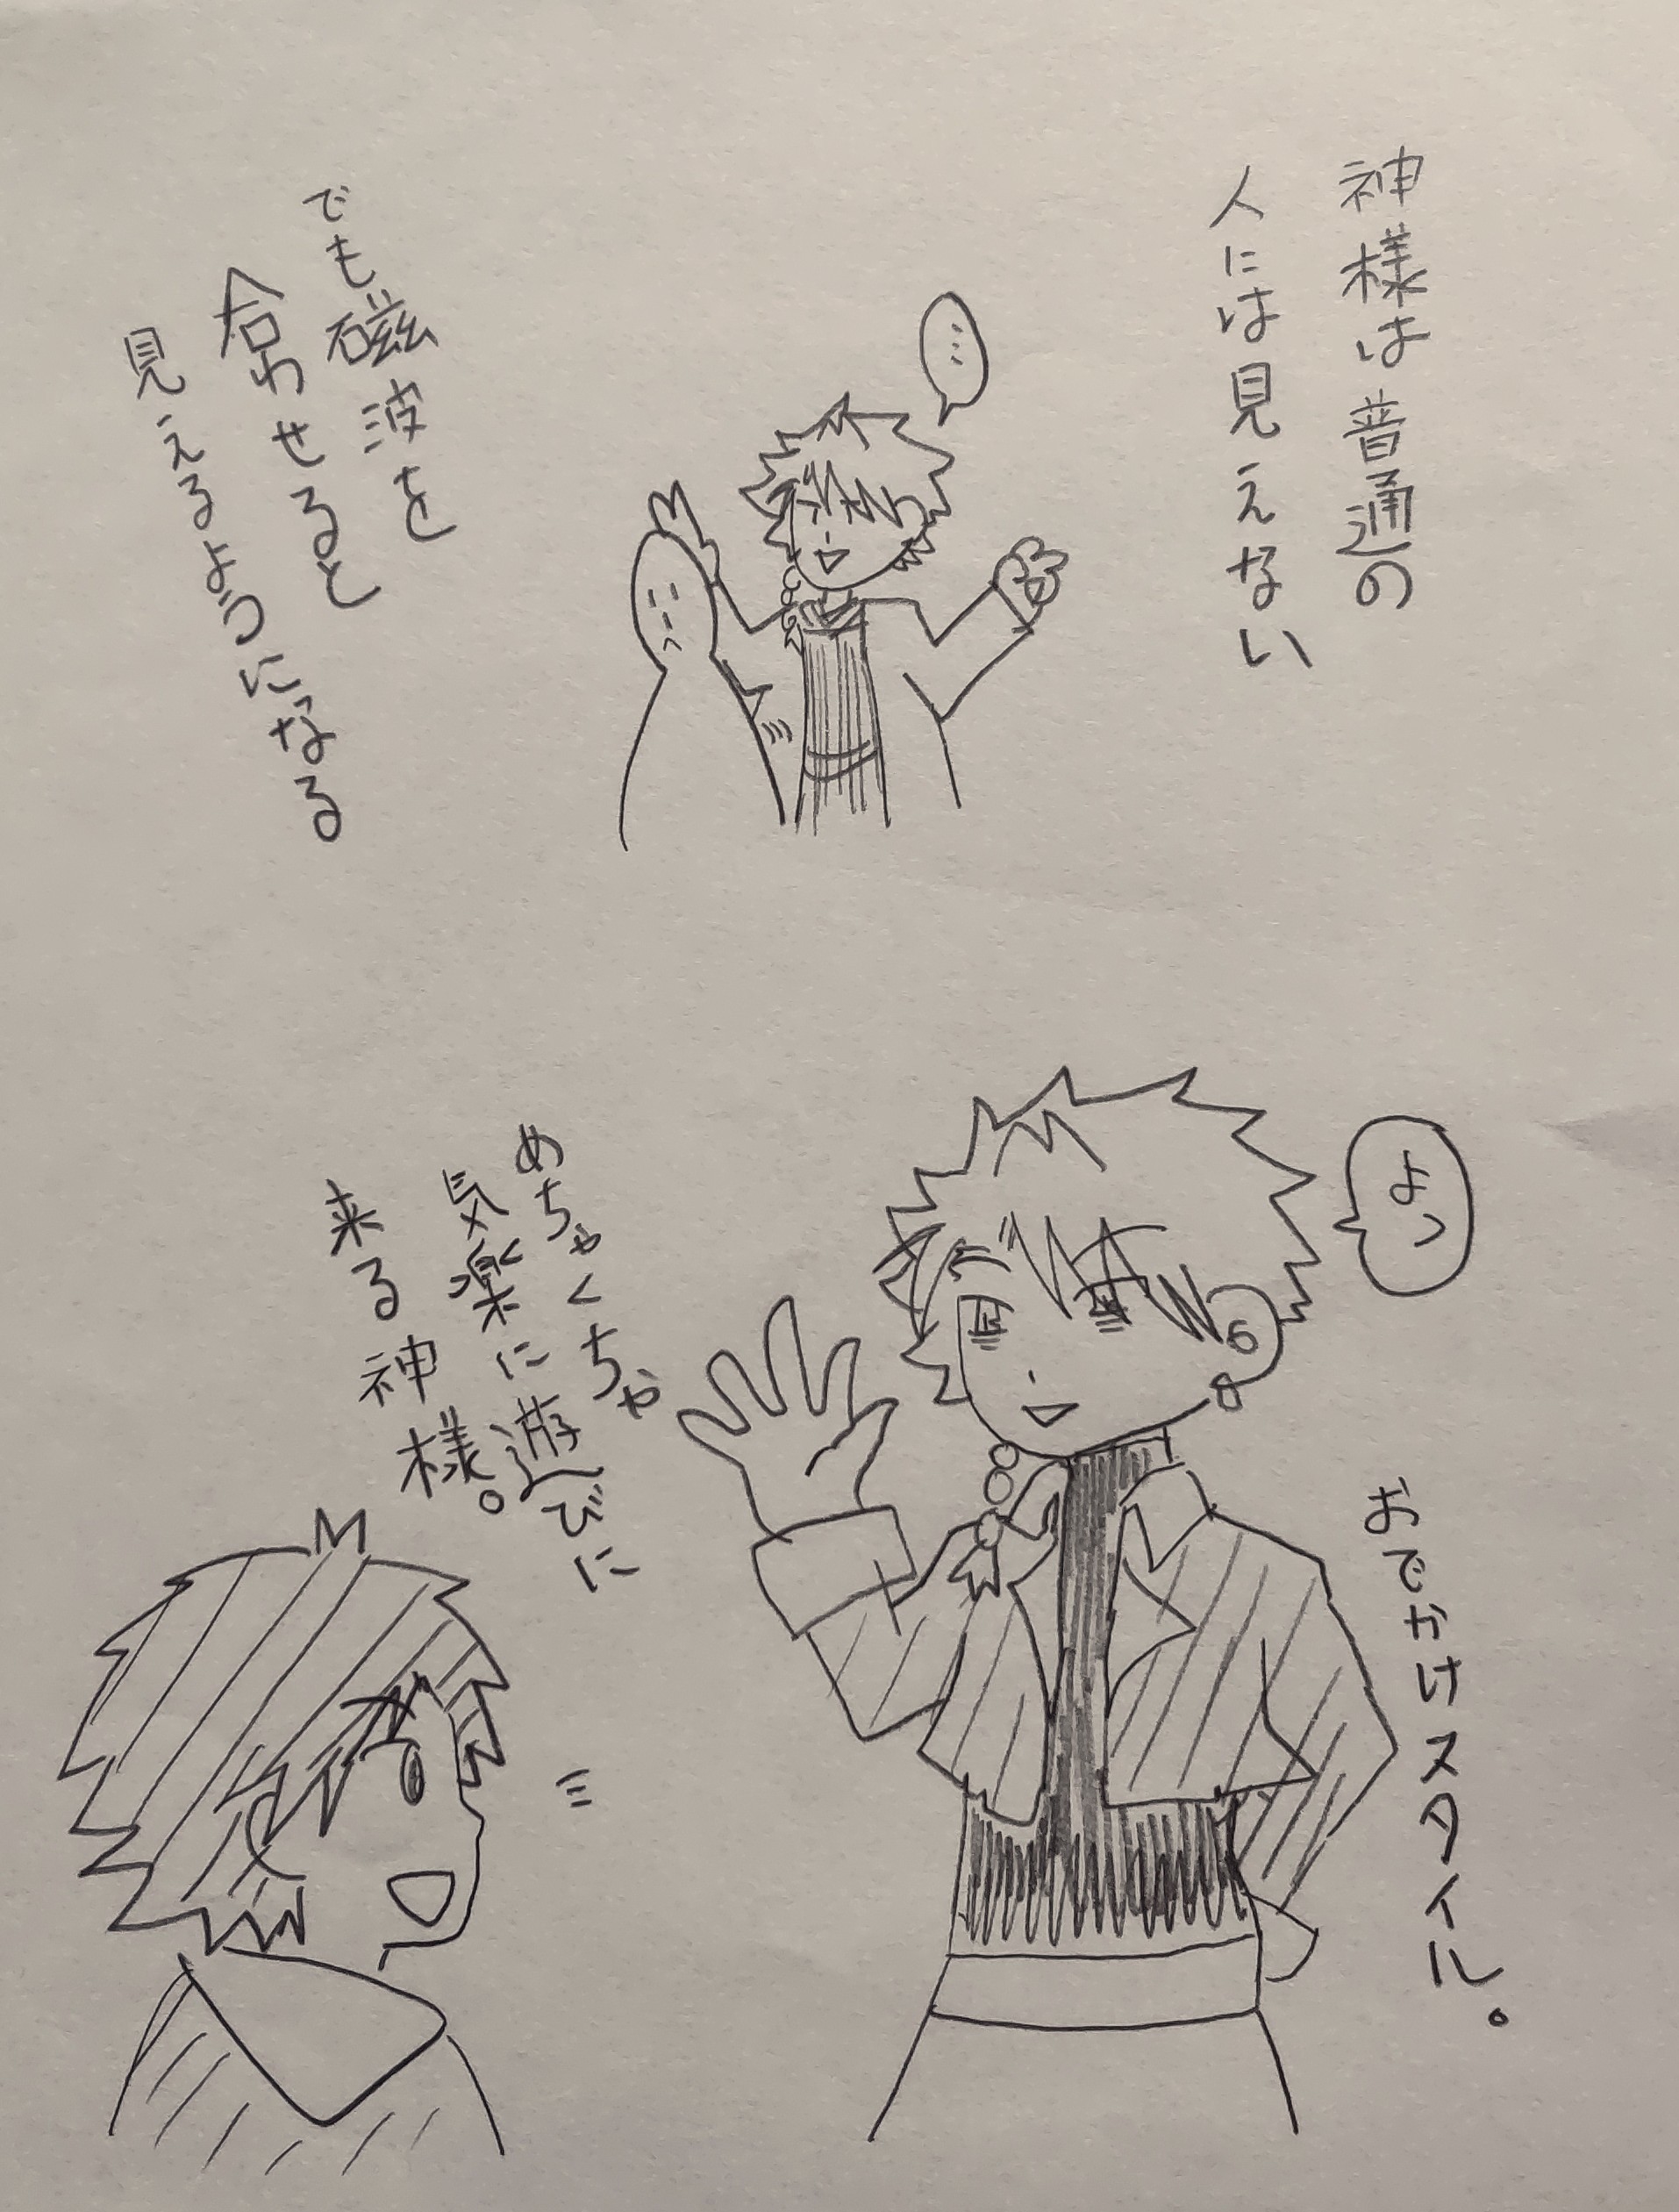 神様は普通の
人には見えない
…
でも磁波を
合わせると
見えるようになる
よっ
おでかけスタイル。
めちゃくちゃ
気楽に遊びに
来る神様。